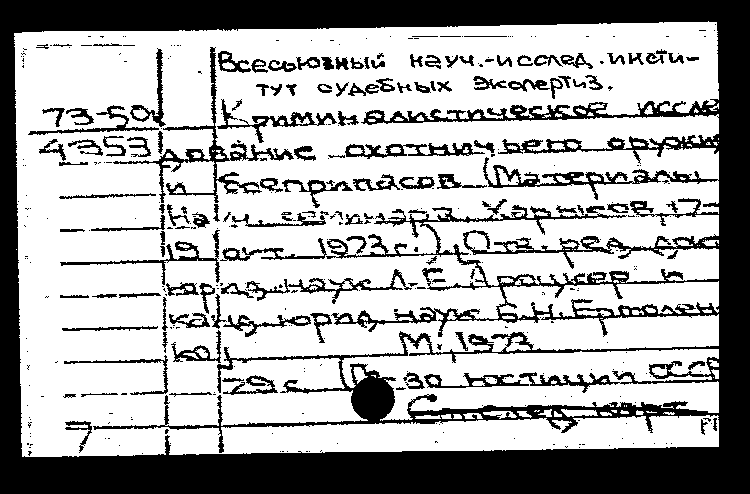 Всесоюзный науч.-исслед. инсти-
тут судебных экспертиз.
73-50 Криминалистическое иссле
4353 дование охотничьего оружи
и боеприпасов (Материалы
Науч. семинара. Харьков, 17-
19 окт. 1973 г.). [Отв. ред. докт
юрид. наук Л.Е. Ароцкер и
канд. юрид. наук Б.Н. Ермолен
ко]. М., 1973
79 с. (М-во юстиции СССР
См. след. карт.
7